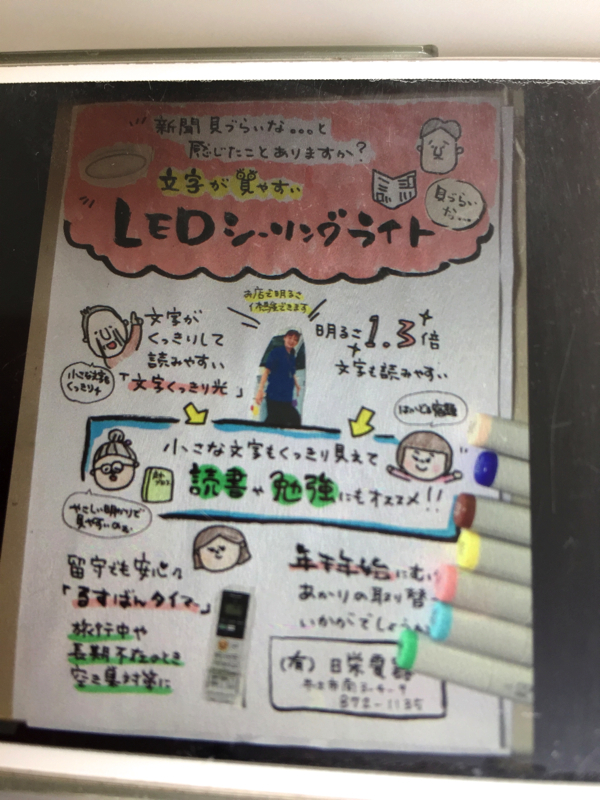 新聞見づらいな...と
感じたことありますか?
文字が見やすい
見づらい
な...
LEDシーリングライト
お店で明るさ
体験できます
文字が
くっきりして
読みやすい
「文字くっきり光」
小さな文字も
くっきり
明るさ1.3倍
文字も読みやすい
小さな文字もくっきり見えて
読書や勉強にもオススメ!!
やさしい明かりで
見やすいのぉ
留守でも安心の
「るすばんタイマー」
旅行中や
長期不在のとき
空き巣対策に
年末年始にむけ
あかりの取り替え
いかがでしょうか
(有)日栄電器
872-1135